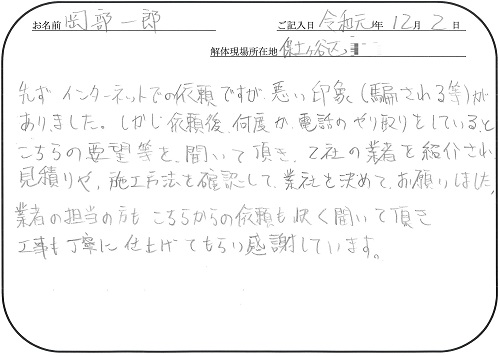 お名前 岡部一郎 ご記入日 令和元年 12月 2日
解体現場所在地 保土ヶ谷区
先ず インターネットでの依頼ですが 悪い印象(騙される等)が
ありました。しかし依頼後、何度か電話のやり取りをしていると
こちらの要望等を聞いて頂き、2社の業者を紹介され
見積りや、施工方法を確認して、業社を決めて、お願いしました。
業者の担当の方も こちらからの依頼も快く聞いて頂き
工事も丁寧に仕上げてもらい感謝しています。